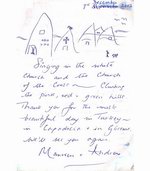 1st November 2002
Singing in the
church and the church
of the Cross — Climbing
the pink, and green hills
Thank you for the most
beautiful day in Turkey —
in Cappadocia — in Göreme.
we'll see you again.
Maureen + Andrew